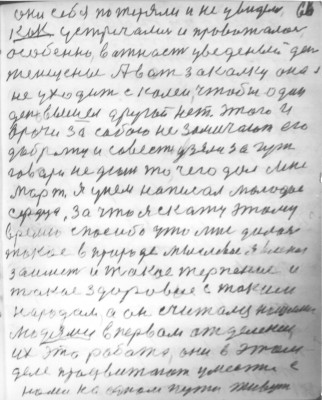 они себя потеряли и не увидели 66
как устречался и провожался
особенно важность уведеный ден
женщине А вот закалку она
не уходит с колеи чтобы один
ден вышел другой нет этого и
врачи за собою не замечают его
доброту и совест узяли за гуж
говари не дюж то чего дал мне
март. Я у нем написал молодое
сердце, за что я скажу этому
время спасибо что мне далося
такое в природе мысленое я
занимат и такое терпение и
такое здоровье с таким
народам, а он считался
людями в первом отделении
их это работа, они в этом
деле процвитают уместе с
нами на одном пути живут